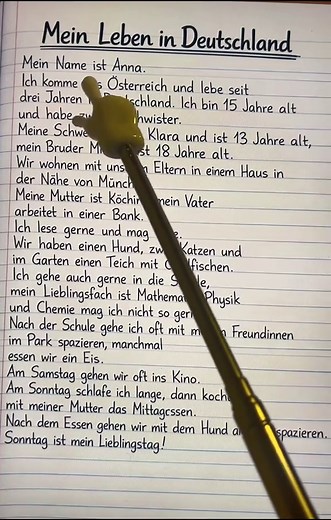 Mein Leben in Deutschland
Mein Name ist Anna.
Ich komme Österreich und lebe seit
drei Jahren Ich bin 15 Jahre alt
und habe
Meine Klara und ist 13 Jahre alt,
mein Bruder ist 18 Jahre alt.
Wir wohnen mit Eltern in einem Haus in
der Nähe von
Meine Mutter ist Köchin mein Vater
arbeitet in einer Bank.
Ich lese gerne und mag
Wir haben einen Hund, Katzen und
im Garten einen Teich mit
Ich gehe auch gerne in die
mein Lieblingsfach ist Physik
und Chemie mag ich nicht so
Nach der Schule gehe ich oft mit Freundinnen
im Park spazieren, manchmal
essen wir ein Eis.
Am Samstag gehen wir oft ins Kino.
Am Sonntag schlafe ich lange, dann
mit meiner Mutter das Mittagcssen.
Nach dem Essen gehen wir mit dem Hund spazieren.
Sonntag ist mein Lieblingstag!